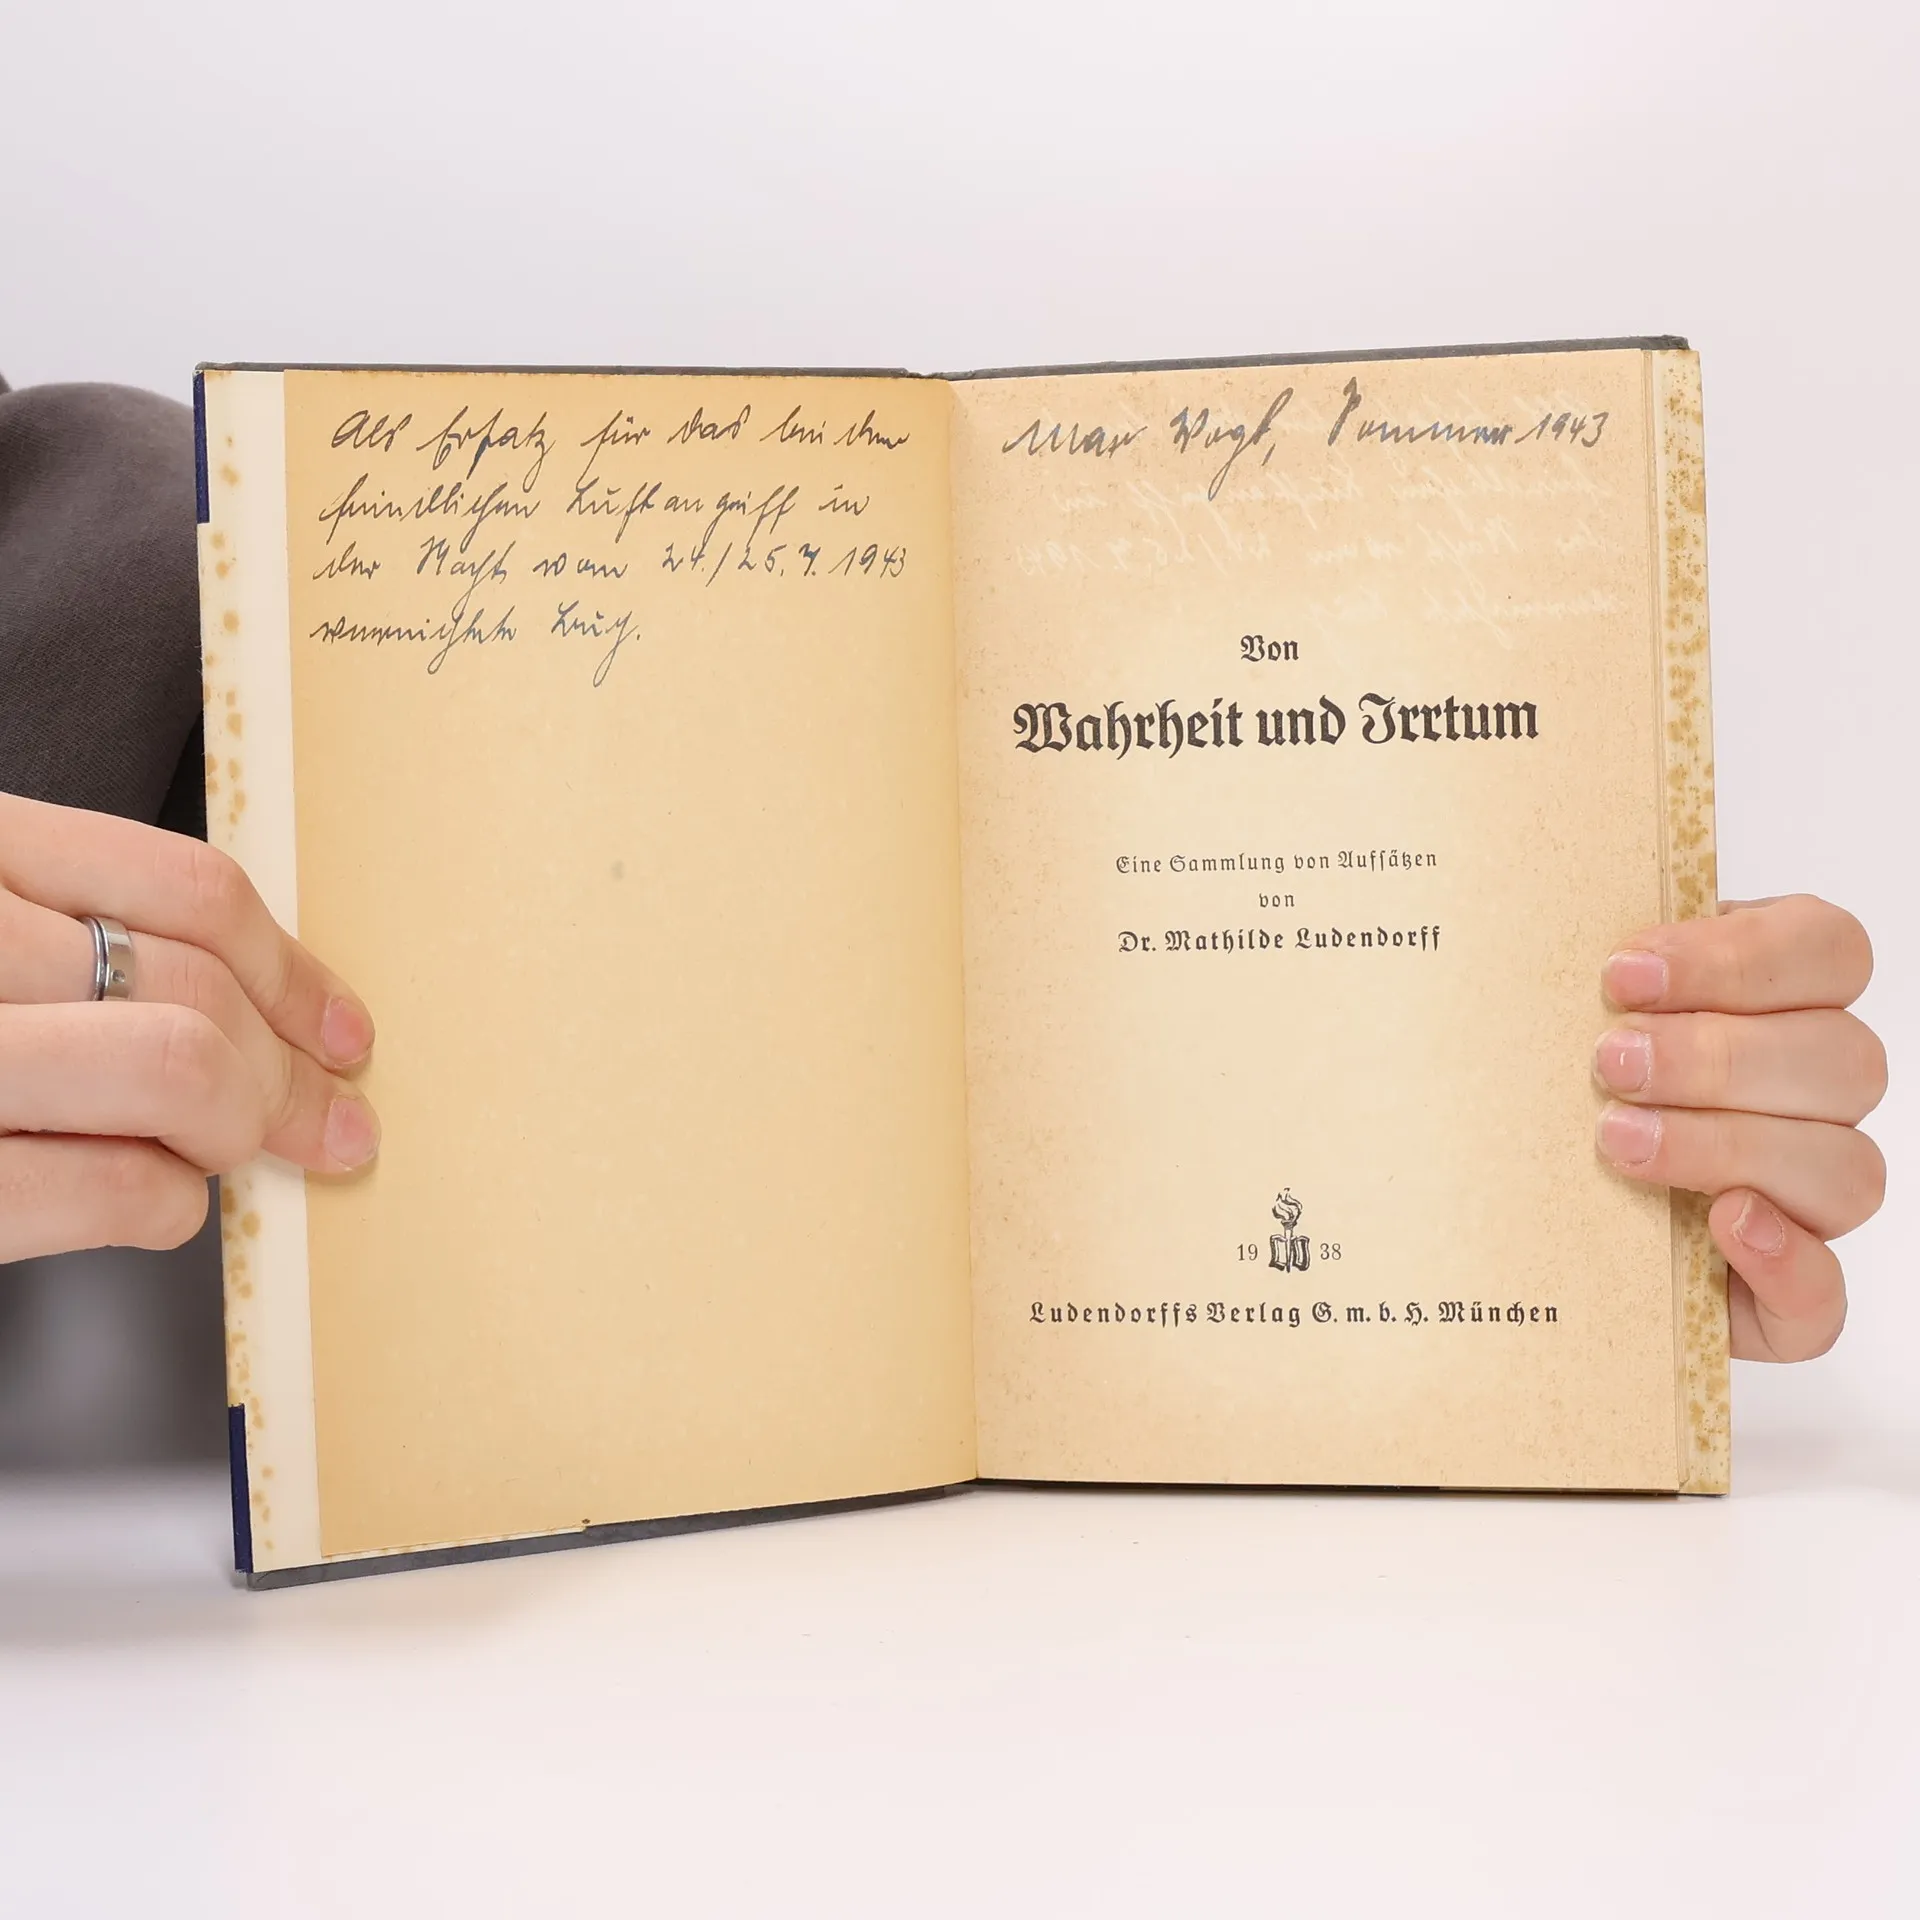 Als Ersatz für das bei dem
feindlichen Luftangriff in
der Nacht vom 24./25.7.1943
vernichtete Buch.
Max Vogt, Sommer 1943
Von
Wahrheit und Irrtum
Eine Sammlung von Aufsätzen
von
Dr. Mathilde Ludendorff
19 38
Ludendorffs Verlag G. m. b. H. München